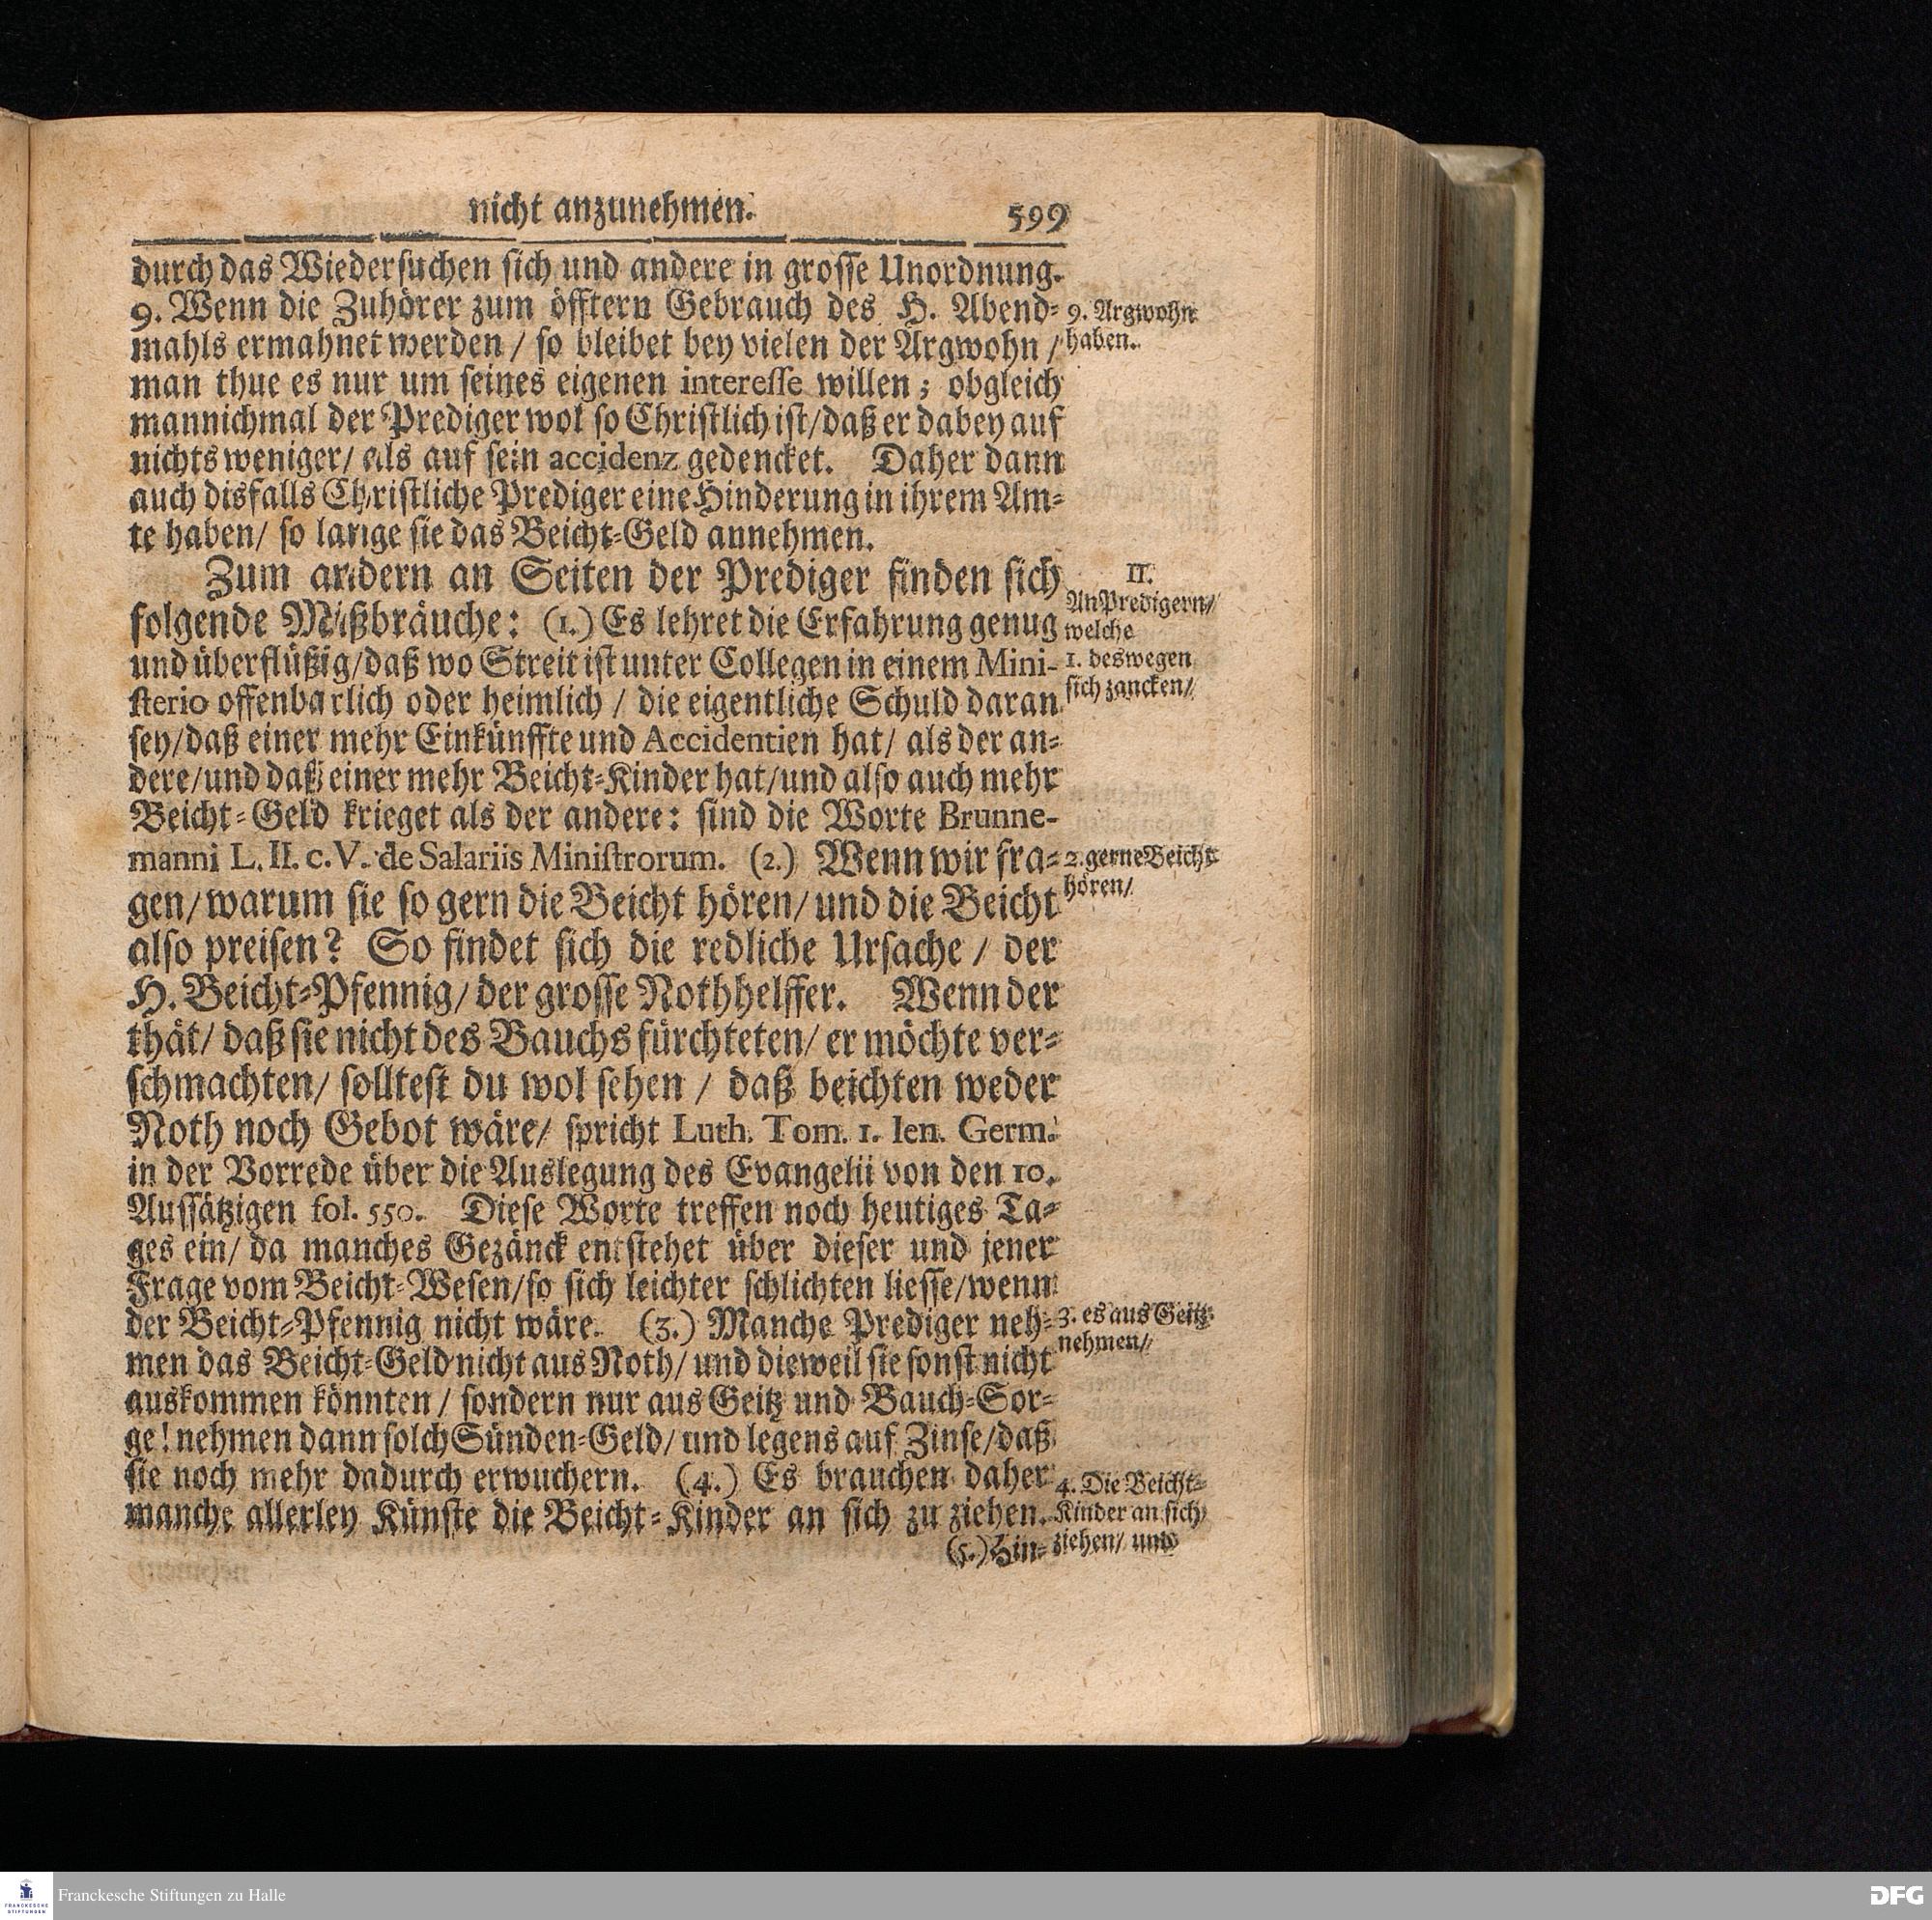 nicht anzunehmen. 599
durch das Wiedersuchen sich und andere in grosse Unordnung.
9. Wenn die Zuhörer zum öfftern Gebrauch des H. Abend-
mahls ermahnet werden / so bleibet bey vielen der Argwohn /
man thue es nur um seines eigenen interesse willen; obgleich
mannichmal der Prediger wol so Christlich ist/daß er dabey auf
nichts weniger/ als auf sein accidenz gedencket. Daher dann
auch disfalls Christliche Prediger eine Hinderung in ihrem Am-
te haben/ so lange sie das Beicht-Geld annehmen.
9. Argwohn
haben.
Zum andern an Seiten der Prediger finden sich
folgende Mißbräuche: (1.) Es lehret die Erfahrung genug
und überflüßig/daß wo Streit ist unter Collegen in einem Mini-
sterio offenbarlich oder heimlich / die eigentliche Schuld daran
sey/daß einer mehr Einkünffte und Accidentien hat/ als der an-
dere/und daß einer mehr Beicht-Kinder hat/und also auch mehr
Beicht-Geld krieget als der andere: sind die Worte Brunne-
manni L. II. c. V. de Salariis Ministrorum. (2.) Wenn wir fra-
gen/warum sie so gern die Beicht hören/und die Beicht
also preisen? So findet sich die redliche Ursache / der
H. Beicht-Pfennig/der grosse Nothhelffer. Wenn der
thät/ daß sie nicht des Bauchs fürchteten/ er möchte ver-
schmachten/ solltest du wol sehen / daß beichten weder
Noth noch Gebot wäre/ spricht Luth. Tom. 1. Ien. Germ.
in der Vorrede über die Auslegung des Evangelii von den 10.
Aussätzigen fol. 550. Diese Worte treffen noch heutiges Ta-
ges ein/ da manches Gezänck entstehet über dieser und jener
Frage vom Beicht-Wesen/so sich leichter schlichten liesse/wenn
der Beicht-Pfennig nicht wäre. (3.) Manche Prediger neh-
men das Beicht-Geld nicht aus Noth/ und dieweil sie sonst nicht
auskommen könnten / sondern nur aus Geitz und Bauch-Sor-
ge! nehmen dann solch Sünden-Geld/ und legens auf Zinse/daß
sie noch mehr dadurch erwuchern. (4.) Es brauchen daher
manche allerley Künste die Beicht-Kinder an sich zu ziehen.
(5.) Hin-
II.
An Predigern/
welche
1. deswegen
sich zancken/
2. gerne Beicht
hören/
3. es aus Geitz
nehmen/
4. Die Beicht-
Kinder an sich
ziehen/ und
Franckesche Stiftungen zu Halle
FRANCKESCHE
STIFTUNGEN
DFG